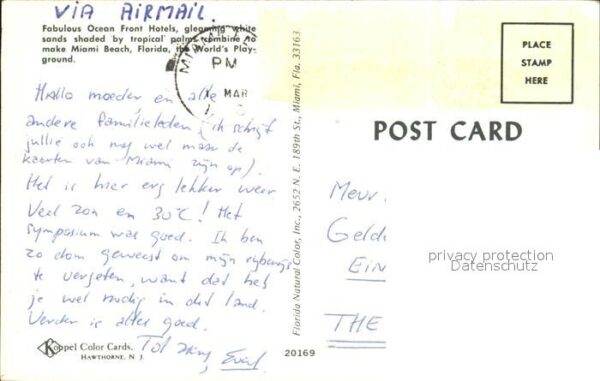 VIA AIRMAIL.
Fabulous Ocean Front Hotels, gleaming white
sands shaded by tropical palms combine to
make Miami Beach, Florida, the World's Play-
ground.
PM
MAR
PLACE
STAMP
HERE
POST CARD
Hallo moeder en alle
andere familieleden (ik schrijf
jullie ook nog wel maar de
kaarten van Miami zijn op).
Het is hier erg lekker weer
Veel zon en 30°C! Het
symposium was goed. Ik ben
zo dom geweest om mijn rijbewijs
te vergeten, want dat heb
je wel nodig in dit land.
Verder is alles goed.
Tot
Florida Natural Color, Inc., 2652 N. E. 189th St., Miami, Fla. 33163
Mevr.
Geld
EIN
THE
privacy protection
Datenschutz
Koppel Color Cards.
HAWTHORNE, N. J.
20169